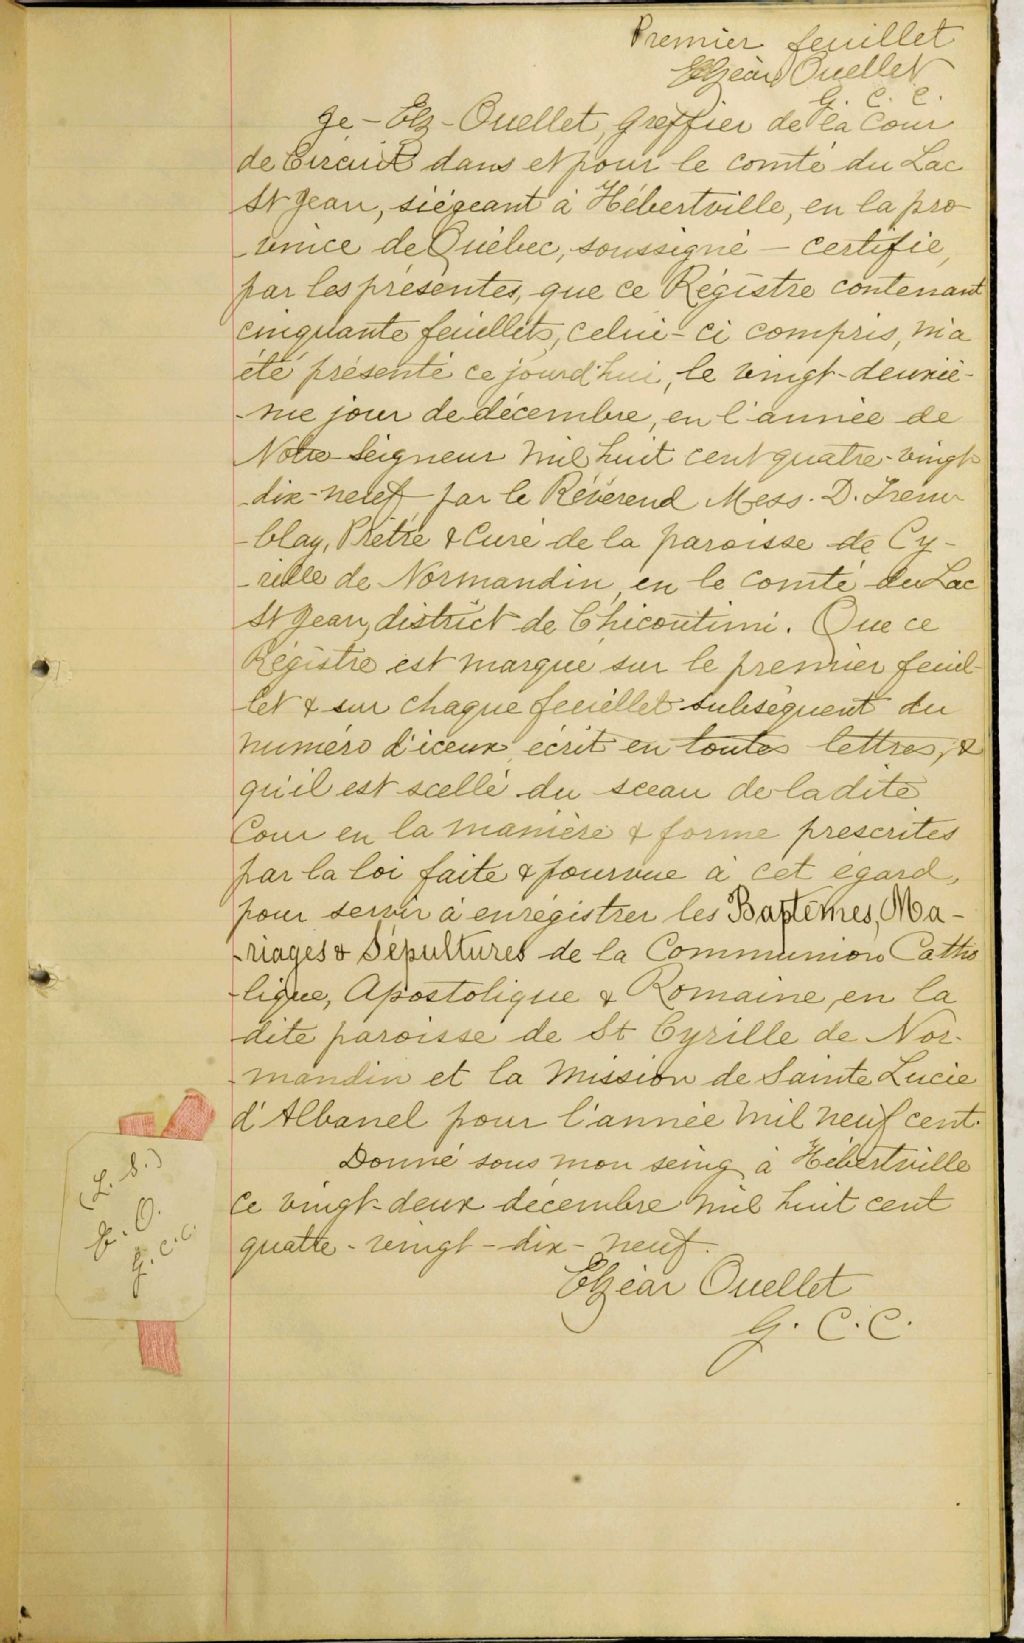 Premier feuillet
Elzéar Ouellet
G. C. C.
Je - Elz - Ouellet, Greffier de la Cour
de Circuit dans et pour le comté du Lac
St Jean, siégeant à Hébertville, en la pro
-vince de Québec, soussigné - certifie,
par les présentes, que ce Régistre contenant
cinquante feuillets, celui-ci compris, m'a
été présenté ce jourd'hui, le vingt-deuxiè-
-me jour de décembre, en l'année de
Notre Seigneur mil huit cent quatre-vingt
-dix-neuf, par le Révérend Mess. D. Trem
-blay, Prêtre & Curé de la paroisse de Cy-
-rille de Normandin, en le comté du Lac
St Jean, district de Chicoutimi. Que ce
Régistre est marqué sur le premier feuil-
let & sur chaque feuillet subséquent du
numéro d'iceux, écrit en toutes lettres, &
qu'il est scellé du sceau de la dite
Cour en la manière & forme prescrites
par la loi faite & pourvue à cet égard,
pour servir à enrégistrer les Baptêmes, Ma-
-riages & Sépultures de la Communion Catho
-lique, Apostolique & Romaine, en la
dite paroisse de St Cyrille de Nor-
-mandin et la Mission de Sainte Lucie
d'Albanel pour l'année mil neuf cent.
Donné sous mon seing à Hébertville
ce vingt-deux décembre mil huit cent
quatre-vingt-dix-neuf.
Elzéar Ouellet
G. C. C.
(L. S.)
E. O.
G. C. C.